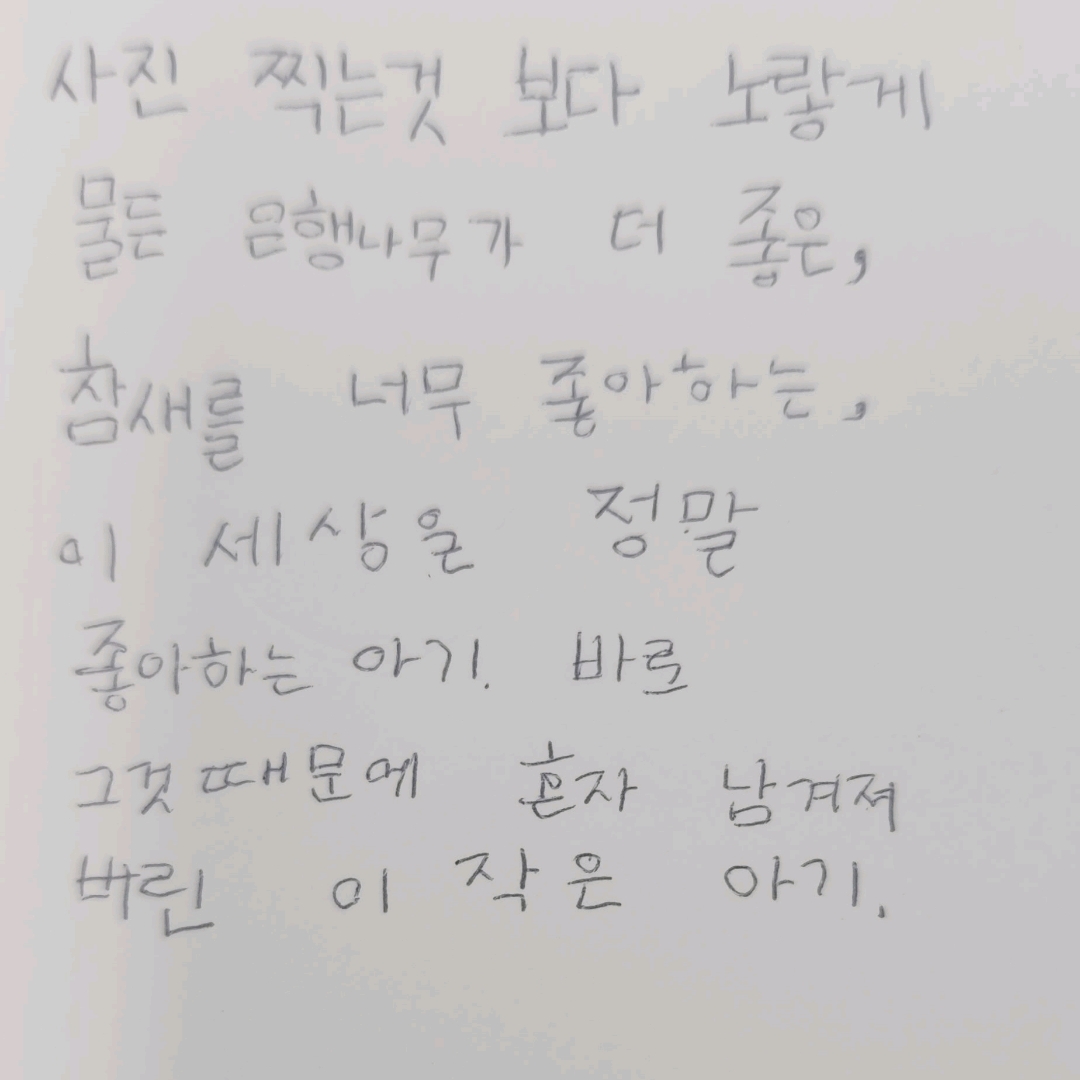 사진 찍는것 보다 노랗게
물든 은행나무가 더 좋은,
참새를 너무 좋아하는,
이 세상을 정말
좋아하는 아기. 바로
그것 때문에 혼자 남겨져
버린 이 작은 아기.